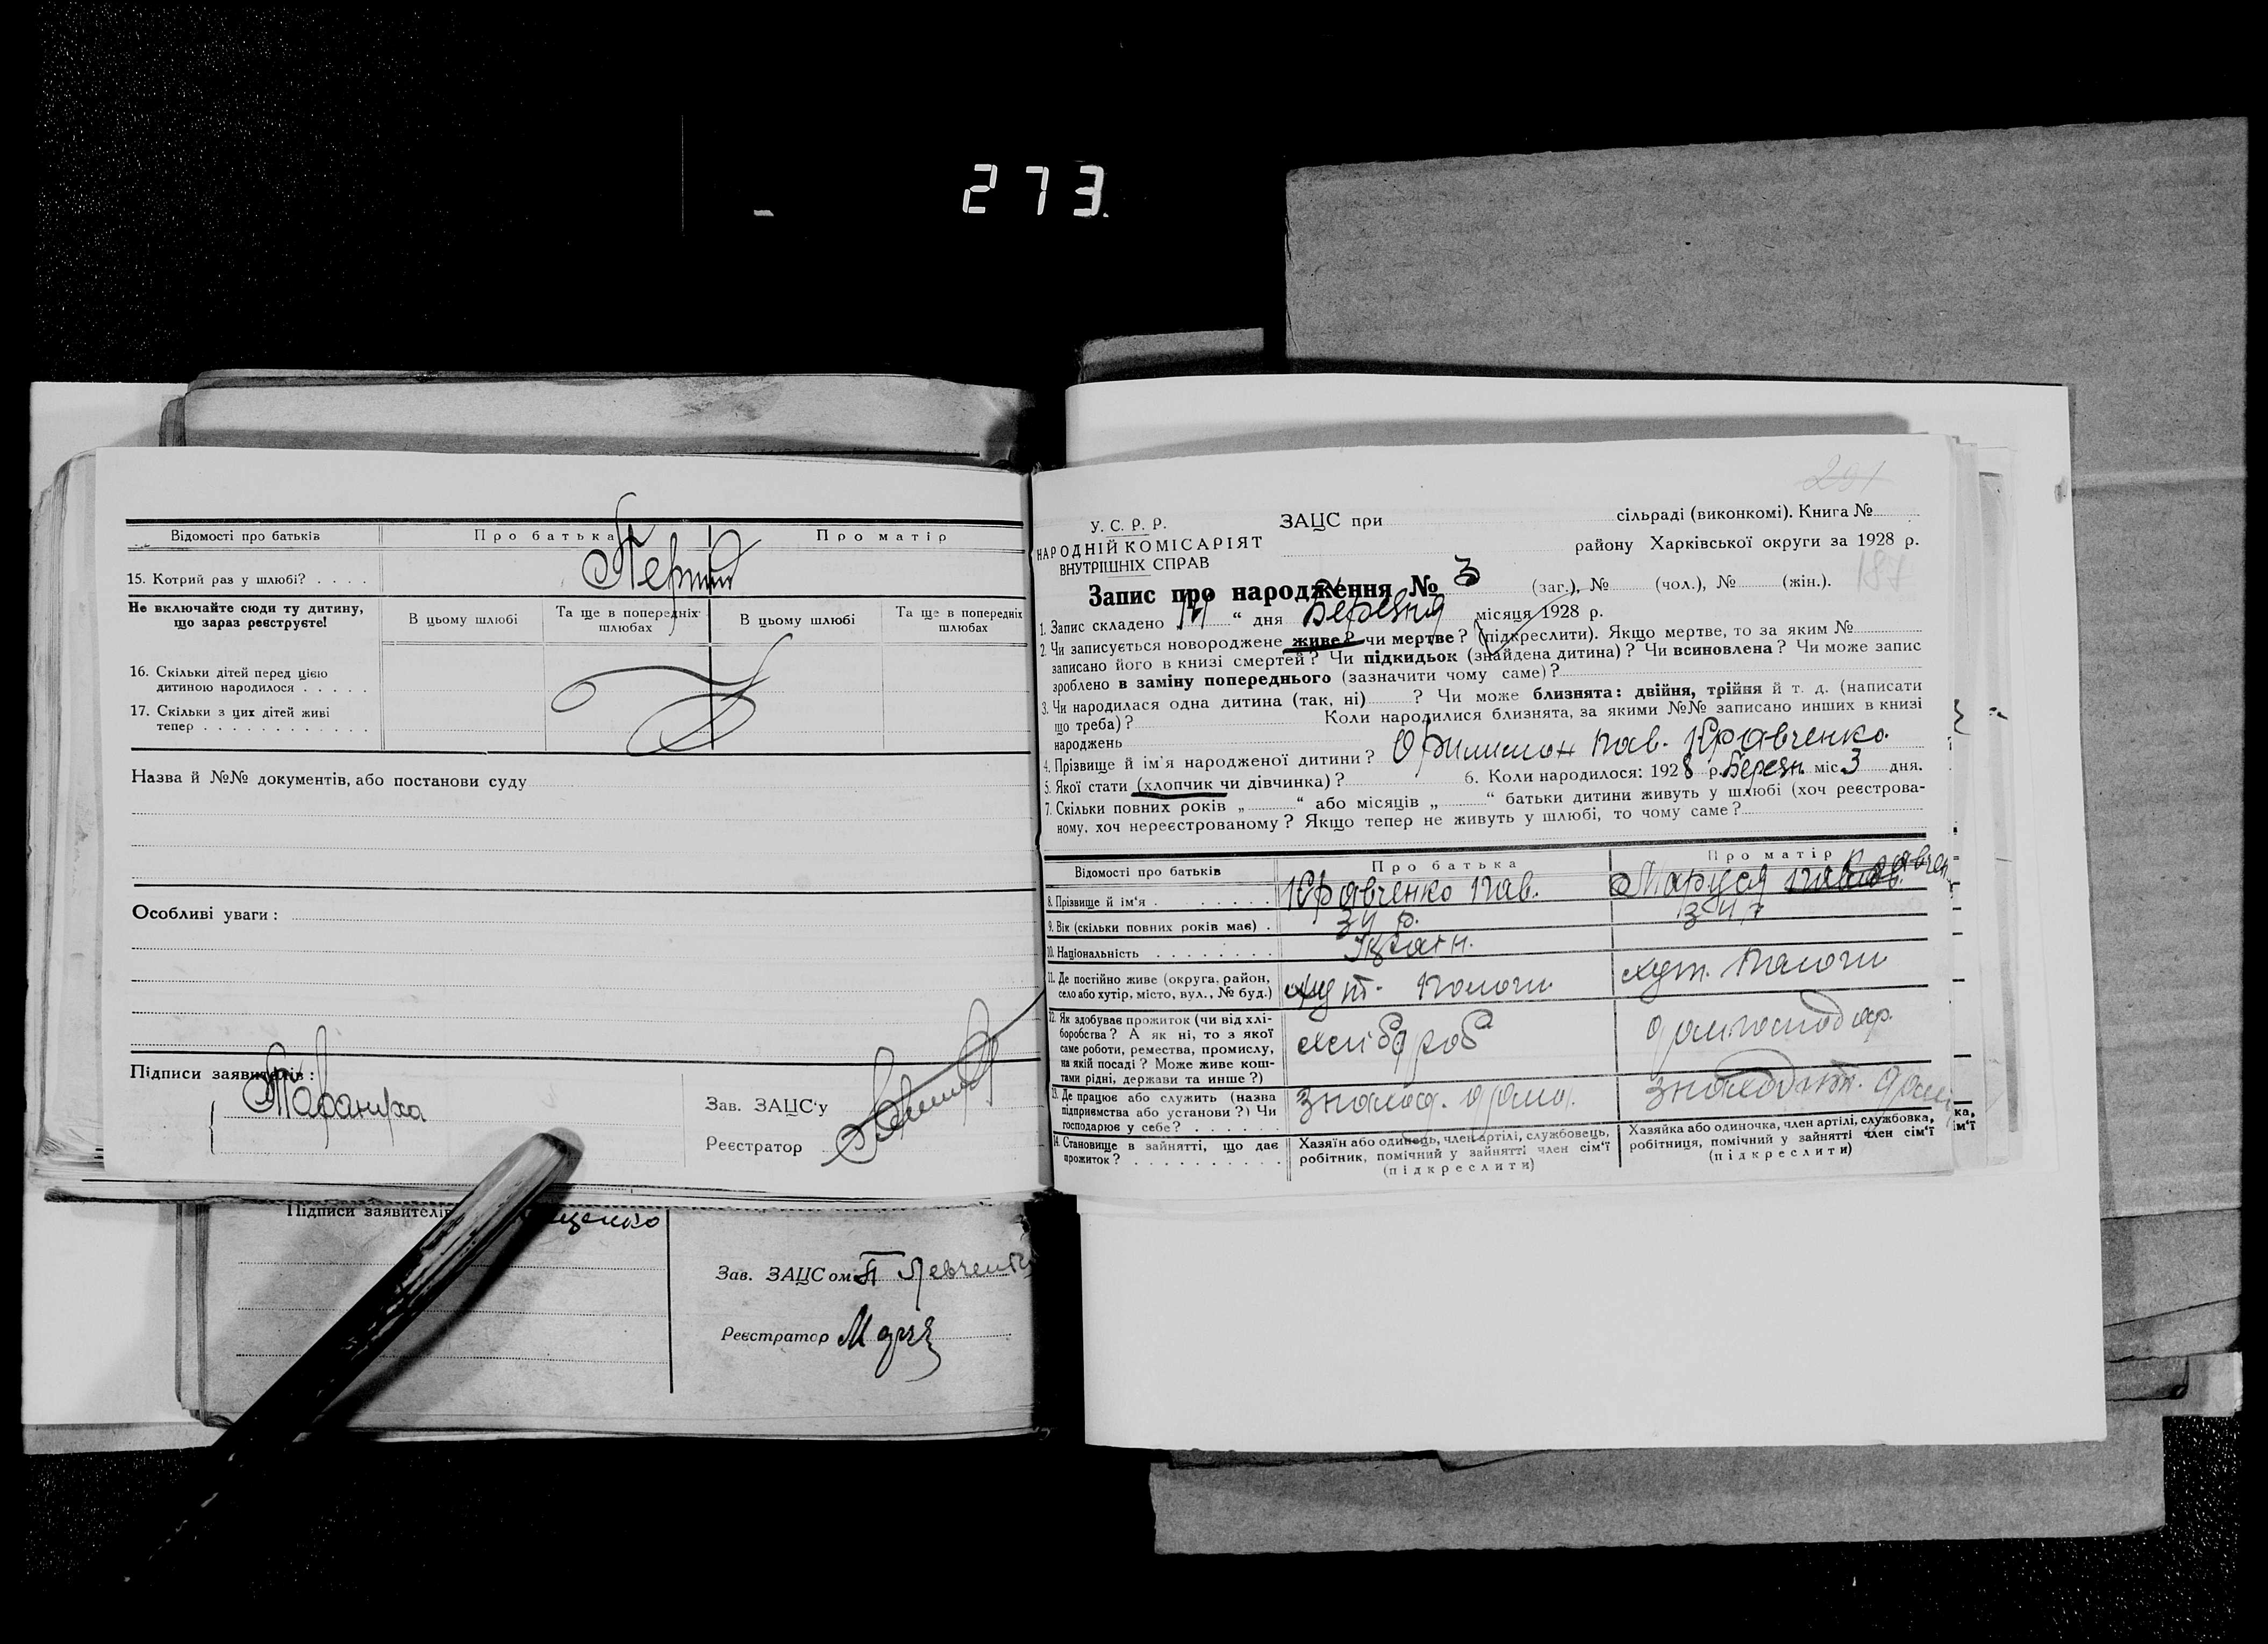 273.
Відомості про батьків Про батька Про матір
15. Котрий раз у шлюбі? . . . .
Не включайте сюди ту дитину, що зараз реєструєте!
В цьому шлюбі Та ще в попередніх шлюбах В цьому шлюбі Та ще в попередніх шлюбах
16. Скільки дітей перед цією
дитиною народилося . . . . .
17. Скільки з цих дітей живі
тепер . . . . . . . . . . . .
Назва й №№ документів, або постанови суду
Особливі уваги :
Підписи заявителів :
Зав. ЗАЦС'у
Реєстратор
Підписи заявителів
Зав. ЗАЦСом
Реєстратор
291
У. С. Р. Р.
НАРОДНІЙ КОМІСАРІЯТ
ВНУТРІШНІХ СПРАВ
ЗАЦС при сільраді (виконкомі). Книга №
району Харківської округи за 1928 р.
187
Запис про народження № 3 (заг.), № (чол.), № (жін.).
1. Запис складено 14 “ дня Березня місяця 1928 р.
2. Чи записується новороджене живе? чи мертве? (підкреслити). Якщо мертве, то за яким №
записано його в книзі смертей? Чи підкидьок (знайдена дитина)? Чи всиновлена? Чи може запис
зроблено в заміну попереднього (зазначити чому саме)?
3. Чи народилася одна дитина (так, ні) ? Чи може близнята: двійня, трійня й т. д. (написати
що треба)? Коли народилися близнята, за якими №№ записано инших в книзі
народжень
4. Прізвище й ім'я народженої дитини? Пав. Кравченко
5. Якої стати (хлопчик чи дівчинка)? 6. Коли народилося: 1928 р. Березн. міс 3 дня.
7. Скільки повних років „ “ або місяців „ “ батьки дитини живуть у шлюбі (хоч реєстрова-
ному, хоч нереєстрованому? Якщо тепер не живуть у шлюбі, то чому саме?
Відомості про батьків Про батька Про матір
8. Прізвище й ім'я . . . . . . . . Кравченко Пав. Маруся
9. Вік (скільки повних років має) . 34 р. 34
10. Національність . . . . . . . . Україн.
11. Де постійно живе (округа, район,
село або хутір, місто, вул., № буд.) хут. хут.
12. Як здобуває прожиток (чи від хлі-
боробства? А як ні, то з якої
саме роботи, ремества, промислу,
на якій посаді? Може живе кош-
тами рідні, держави та инше?)
хлібороб домгосподар.
13. Де працює або служить (назва
підприємства або установи?) Чи
господарює у себе? . . . . . .
14. Становище в зайнятті, що дає
прожиток? . . . . . . . . . .
Хазяїн або одинець, член артілі, службовець,
робітник, помічний у зайнятті член сім'ї
(підкреслити)
Хазяйка або одиночка, член артілі, службовка,
робітниця, помічний у зайнятті член сім'ї
(підкреслити)